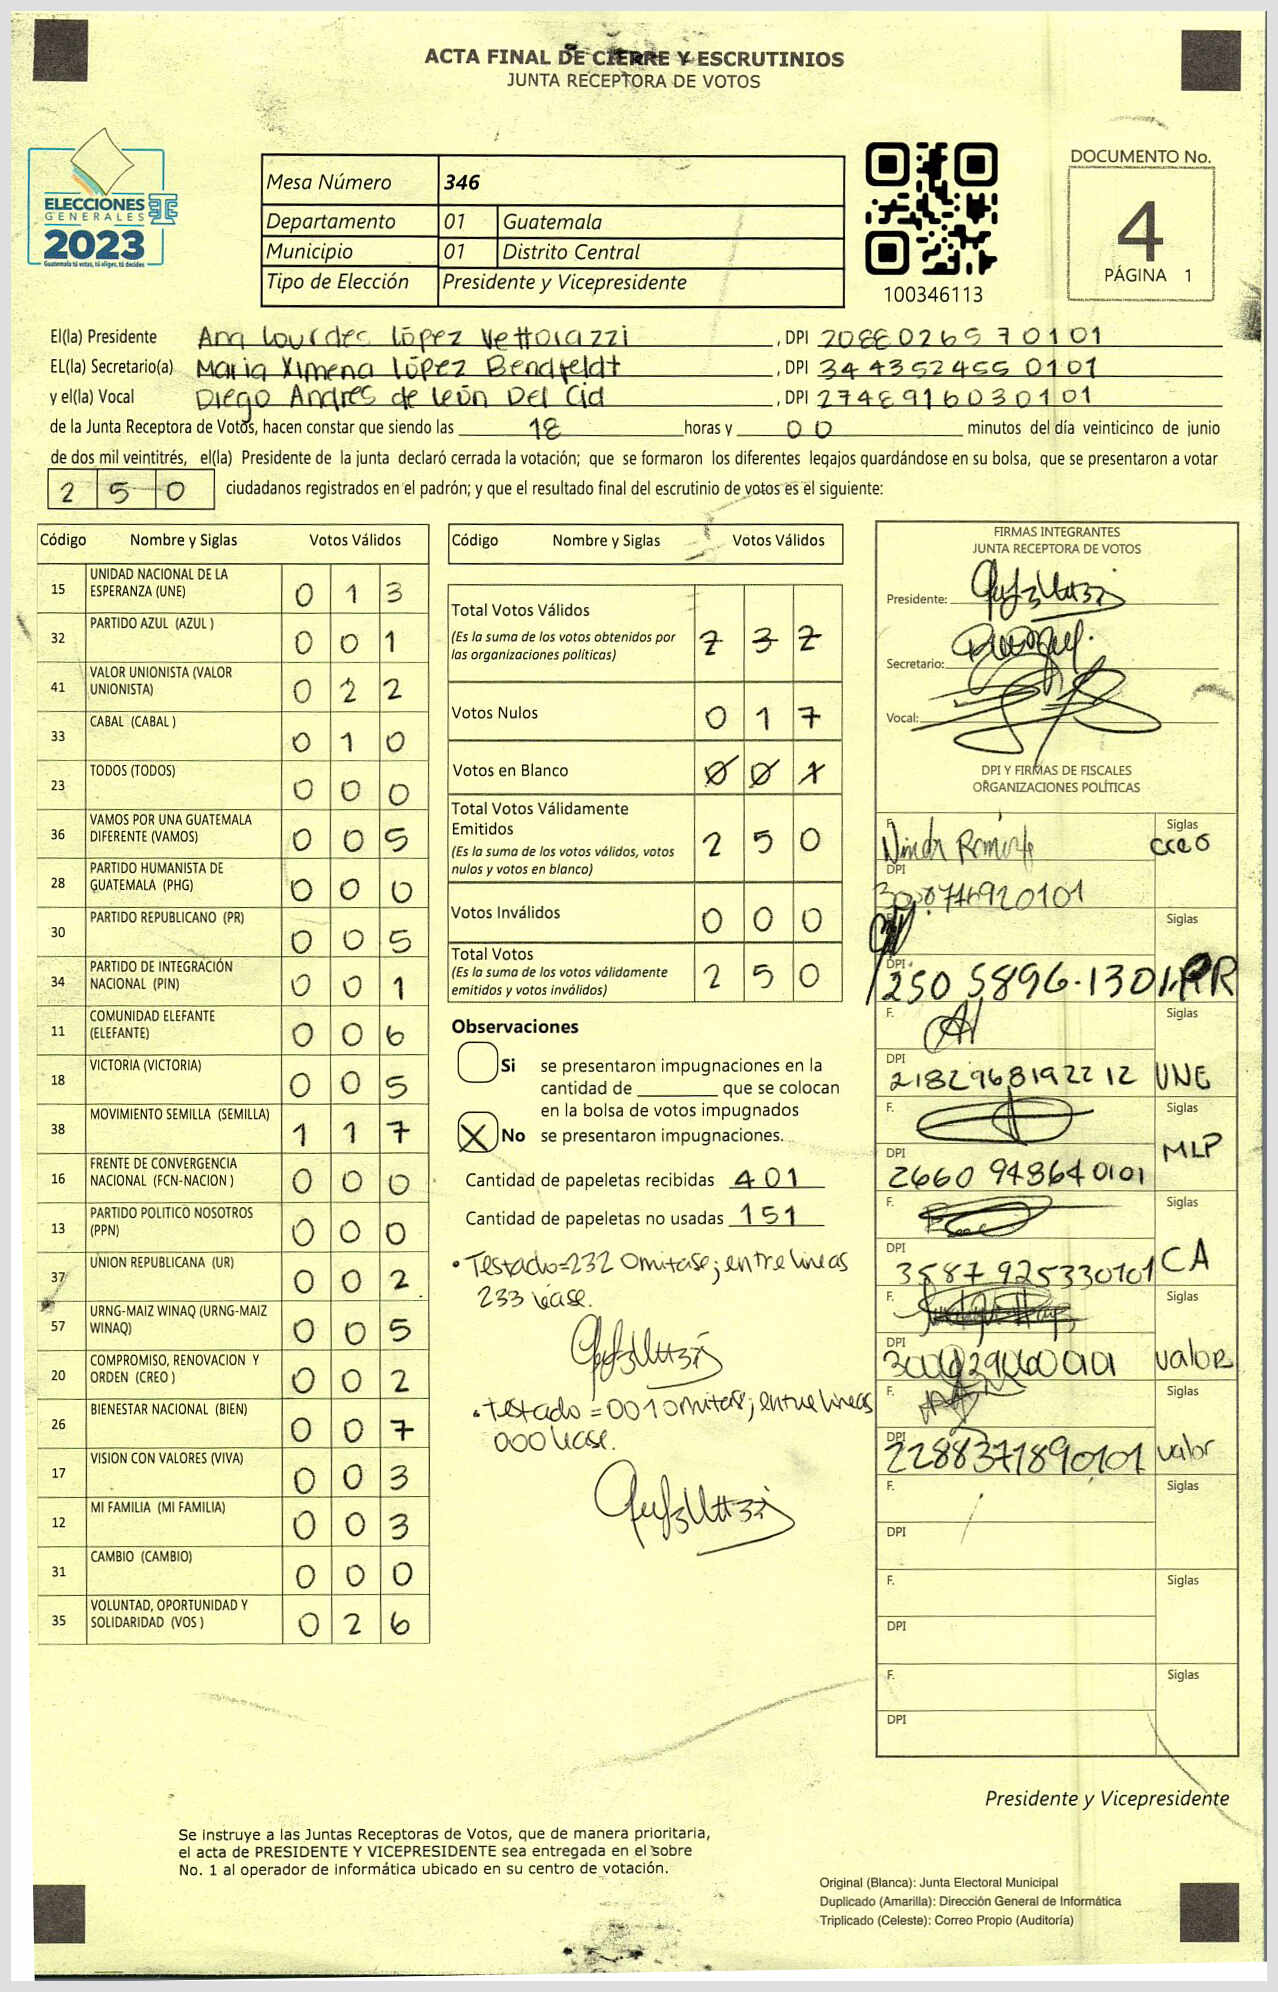 ACTA FINAL DE CIERRE Y ESCRUTINIOS
JUNTA RECEPTORA DE VOTOS
ELECCIONES
GENERALES
2023
Guatemala tú votas, tú eliges, tú decides
Mesa Número 346
Departamento 01 Guatemala
Municipio 01 Distrito Central
Tipo de Elección Presidente y Vicepresidente
100346113
DOCUMENTO No.
4
PÁGINA 1
El(la) Presidente Ana Lourdes López Vettorazzi, DPI 2088026570101
EL(la) Secretario(a) Maria Ximena López Bendfeldt, DPI 3443524550101
y el(la) Vocal Diego Andrés de León Del Cid, DPI 2748916030101
de la Junta Receptora de Votos, hacen constar que siendo las 18 horas y 00 minutos del día veinticinco de junio
de dos mil veintitrés, el(la) Presidente de la junta declaró cerrada la votación; que se formaron los diferentes legajos guardándose en su bolsa, que se presentaron a votar
250 ciudadanos registrados en el padrón; y que el resultado final del escrutinio de votos es el siguiente:
Código Nombre y Siglas Votos Válidos
15 UNIDAD NACIONAL DE LA ESPERANZA (UNE) 0 1 3
32 PARTIDO AZUL (AZUL ) 0 0 1
41 VALOR UNIONISTA (VALOR UNIONISTA) 0 2 2
33 CABAL (CABAL ) 0 1 0
23 TODOS (TODOS) 0 0 0
36 VAMOS POR UNA GUATEMALA DIFERENTE (VAMOS) 0 0 5
28 PARTIDO HUMANISTA DE GUATEMALA (PHG) 0 0 0
30 PARTIDO REPUBLICANO (PR) 0 0 5
34 PARTIDO DE INTEGRACIÓN NACIONAL (PIN) 0 0 1
11 COMUNIDAD ELEFANTE (ELEFANTE) 0 0 6
18 VICTORIA (VICTORIA) 0 0 5
38 MOVIMIENTO SEMILLA (SEMILLA) 1 1 7
16 FRENTE DE CONVERGENCIA NACIONAL (FCN-NACION ) 0 0 0
13 PARTIDO POLITICO NOSOTROS (PPN) 0 0 0
37 UNION REPUBLICANA (UR) 0 0 2
57 URNG-MAIZ WINAQ (URNG-MAIZ WINAQ) 0 0 5
20 COMPROMISO, RENOVACION Y ORDEN (CREO ) 0 0 2
26 BIENESTAR NACIONAL (BIEN) 0 0 7
17 VISION CON VALORES (VIVA) 0 0 3
12 MI FAMILIA (MI FAMILIA) 0 0 3
31 CAMBIO (CAMBIO) 0 0 0
35 VOLUNTAD, OPORTUNIDAD Y SOLIDARIDAD (VOS ) 0 2 6
Código Nombre y Siglas Votos Válidos
Total Votos Válidos
(Es la suma de los votos obtenidos por
las organizaciones políticas) 2 3 2
Votos Nulos 0 1 7
Votos en Blanco 0 0 1
Total Votos Válidamente
Emitidos
(Es la suma de los votos válidos, votos
nulos y votos en blanco) 2 5 0
Votos Inválidos 0 0 0
Total Votos
(Es la suma de los votos válidamente
emitidos y votos inválidos) 2 5 0
Observaciones
Si se presentaron impugnaciones en la
cantidad de ________ que se colocan
en la bolsa de votos impugnados
X No se presentaron impugnaciones.
Cantidad de papeletas recibidas 401
Cantidad de papeletas no usadas 151
• Testado=232 Omitase; entre lineas
233 léase.
• Testado = 001 Omitase; entre lineas
000 léase.
FIRMAS INTEGRANTES
JUNTA RECEPTORA DE VOTOS
Presidente:
Secretario:
Vocal:
DPI Y FIRMAS DE FISCALES
ORGANIZACIONES POLÍTICAS
F. Siglas creo
DPI
F. Siglas PR
DPI 250 5896-1301
F. Siglas UNE
DPI 2182968192212
F. Siglas MLP
DPI 2660 948640101
F. Siglas CA
DPI 3587 925330101
F. Siglas valor
DPI
F. Siglas valor
DPI 2288371890101
F. Siglas
DPI
F. Siglas
DPI
F. Siglas
DPI
Presidente y Vicepresidente
Se instruye a las Juntas Receptoras de Votos, que de manera prioritaria,
el acta de PRESIDENTE Y VICEPRESIDENTE sea entregada en el sobre
No. 1 al operador de informática ubicado en su centro de votación.
Original (Blanca): Junta Electoral Municipal
Duplicado (Amarilla): Dirección General de Informática
Triplicado (Celeste): Correo Propio (Auditoría)